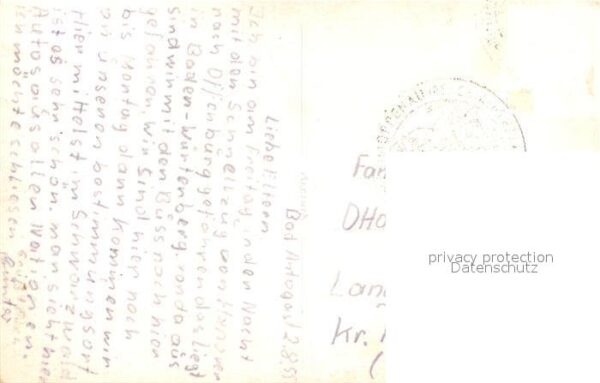 Bad Antogast 2.8.55
Liebe Eltern
Ich bin am Freitag in den Nacht
mit den Schnellzug von Hannover
nach Offenburg gefahren das liegt
in Baden-Würtenberg. von da aus
sind wir mit den Buss nach hier
gefahren, wir sind hier noch
bis Montag dann kommen wir
zu unseren bostimmungsort
Hier mittelst im Schwarzwald
ist es sehr schön. man sieht hier
Autos aus allen Nationen.
Ich möchte schliesen
Günter
OPPENAU
Fam
Lang
Kr.
privacy protection
Datenschutz